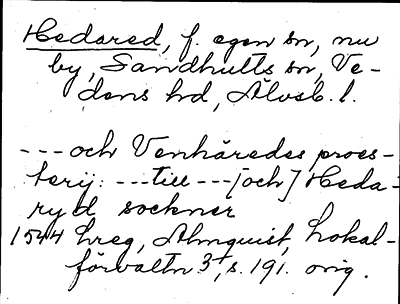 Hedared, f. egen sn, nu
by, Sandhults sn, Ve-
dens hd, Älvsb. l.
---och Venhäredes proes-
terij: ---till---[och] Heda-
ryd sockner
1544 hreg, Almquist, Lokal-
förvaltn 3, s. 191. orig.